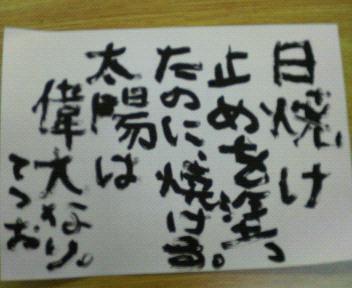 日焼け
止めを塗っ
たのに、焼ける。
太陽は
偉大なり。
てつお